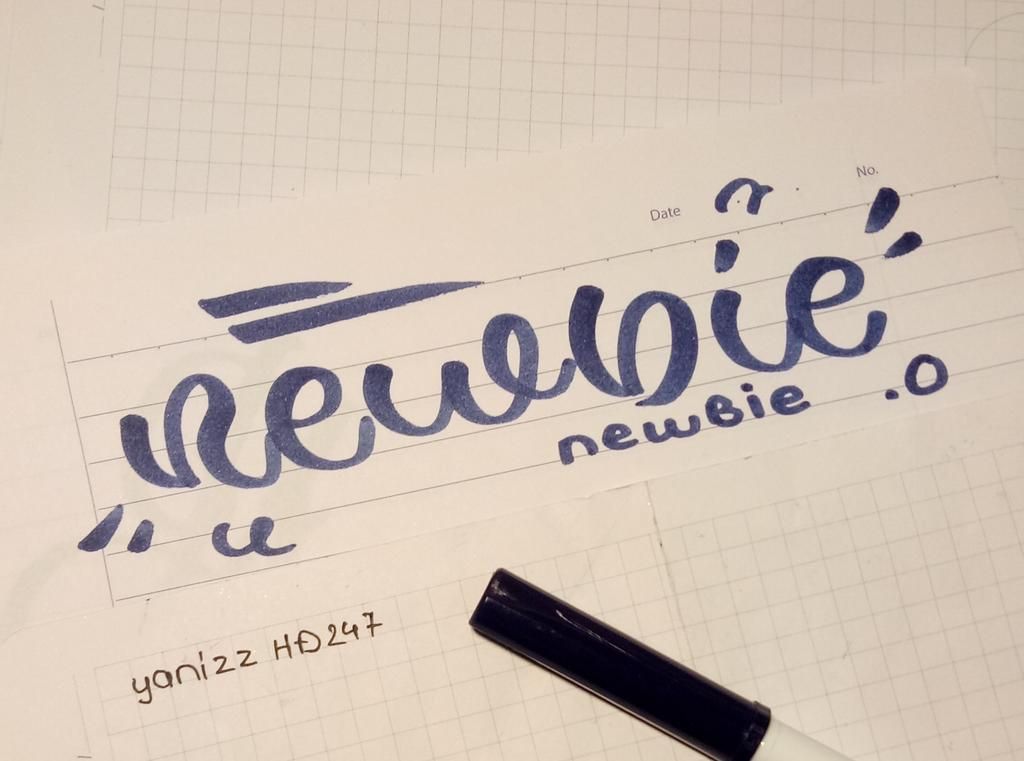 Date No.
newbie
newBie .O
yanizz HĐ247